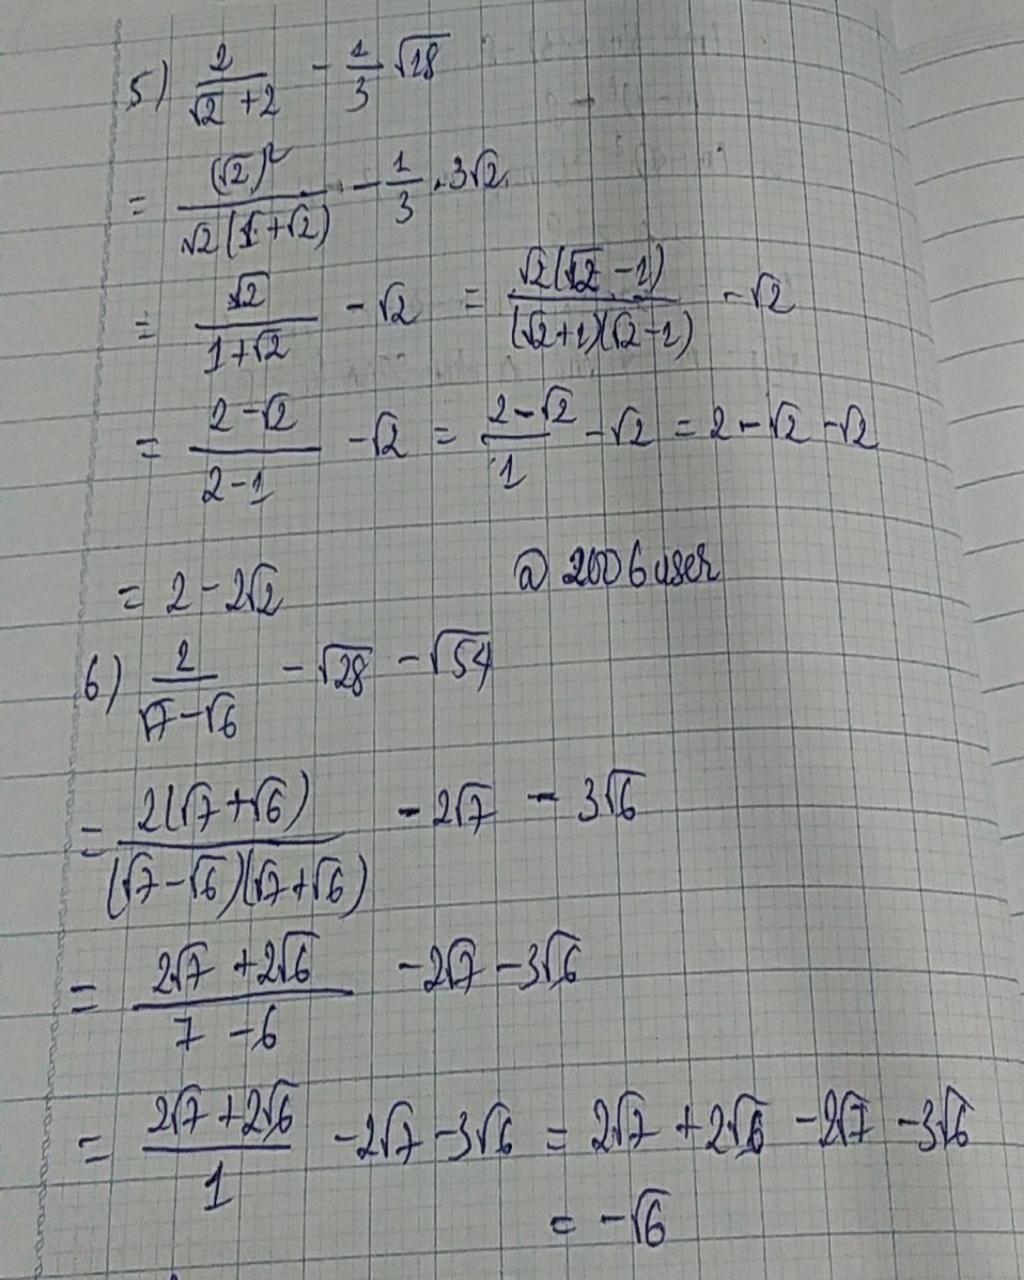 5) 2/(√2 + 2) - 1/3 √18
= (√2)²/(√2(1+√2)) - 1/3 . 3√2
= √2/(1+√2) - √2 = √2(√2 - 1)/((√2+1)(√2-1)) - √2
= (2-√2)/(2-1) - √2 = (2-√2)/1 - √2 = 2 - √2 - √2
= 2 - 2√2 @ 2006user
6) 2/(√7 - √6) - √28 - √54
= 2(√7 + √6)/((√7-√6)(√7+√6)) - 2√7 - 3√6
= (2√7 + 2√6)/(7 - 6) - 2√7 - 3√6
= (2√7 + 2√6)/1 - 2√7 - 3√6 = 2√7 + 2√6 - 2√7 - 3√6
= -√6